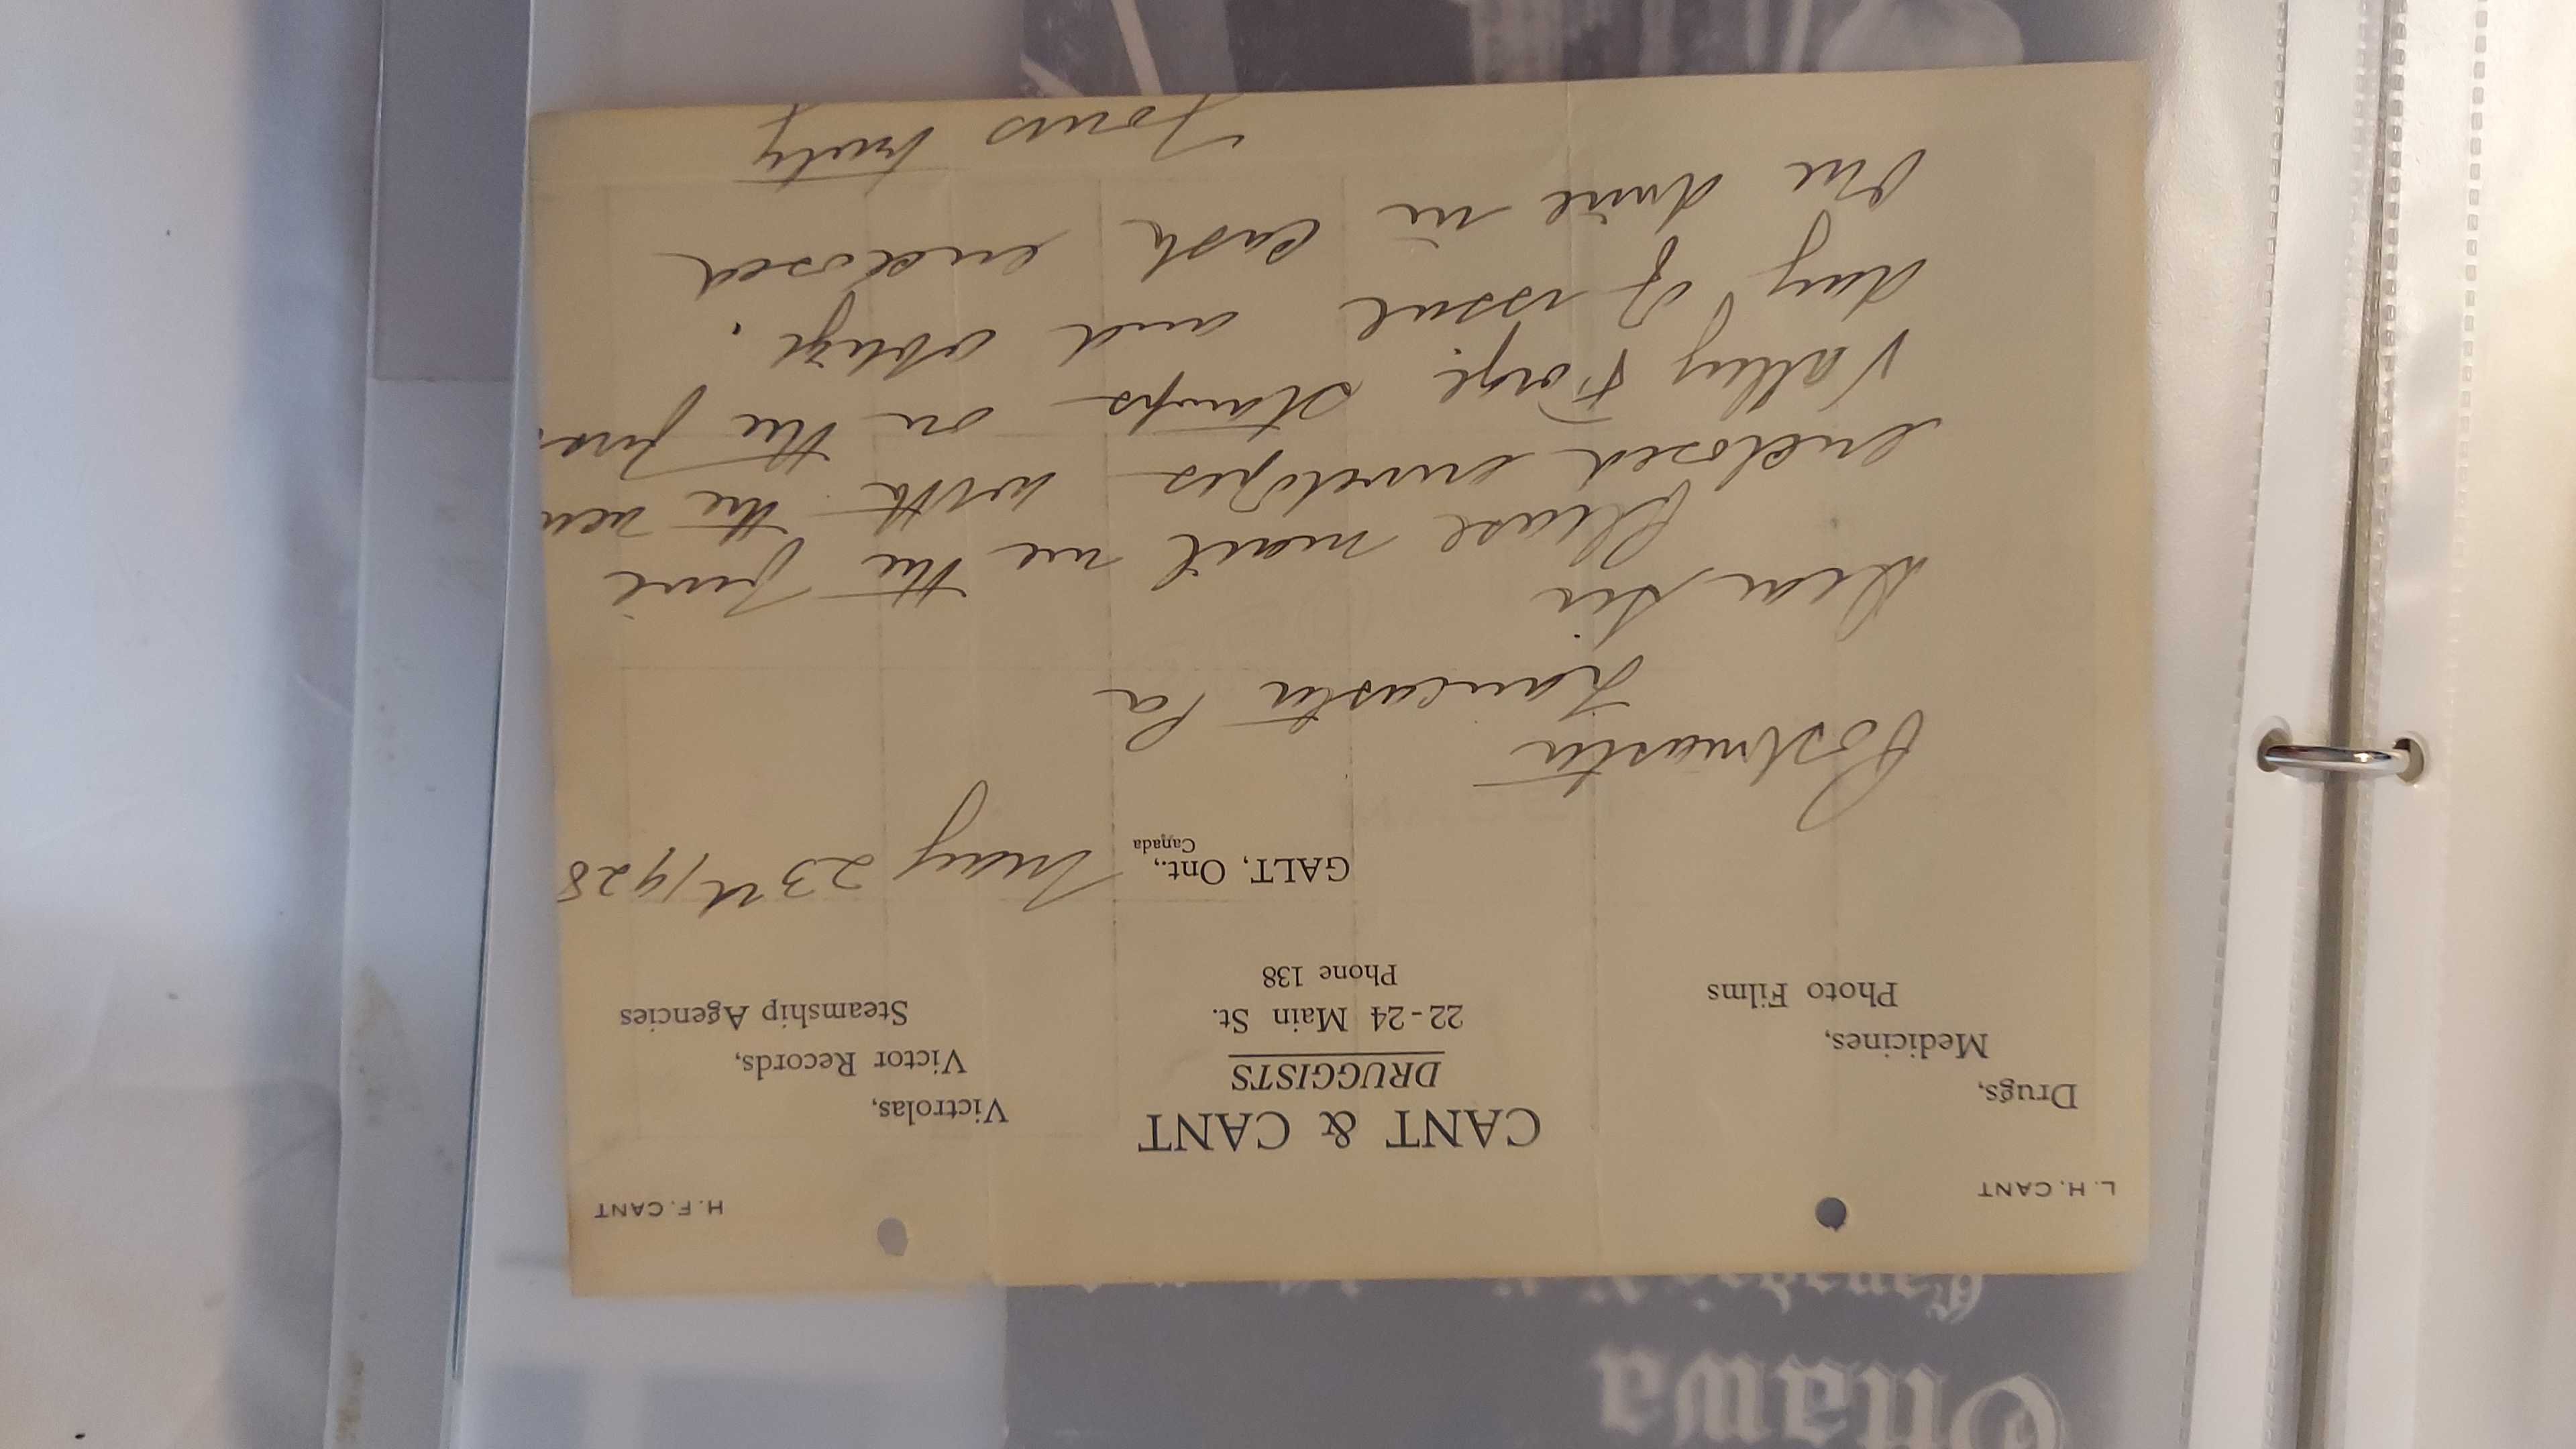 L. H. CANT
H. F. CANT
CANT & CANT
DRUGGISTS
22-24 Main St.
Phone 138
Drugs,
Medicines,
Photo Films
Victrolas,
Victor Records,
Steamship Agencies
GALT, Ont.,
Canada
May 23rd 1928
Postmaster
Lancaster Pa
Dear Sir
Please mail me the five
enclosed envelopes with the new
Valley Forge stamps on the firs
day of issue and oblige.
One dime in cash enclosed
Yours truly
Ottawa